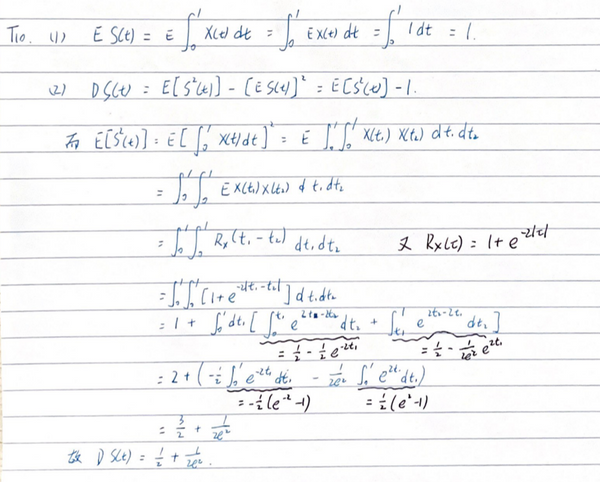 T10. (1) E S(t) = E ∫₀¹ X(t) dt = ∫₀¹ E X(t) dt = ∫₀¹ 1 dt = 1.
(2) D S(t) = E[S²(t)] - [E S(t)]² = E[S²(t)] - 1.
而 E[S²(t)] = E[∫₀¹ X(t) dt]² = E ∫₀¹ ∫₀¹ X(t₁) X(t₂) dt₁ dt₂
= ∫₀¹ ∫₀¹ E X(t₁) X(t₂) d t₁ dt₂
= ∫₀¹ ∫₀¹ Rx (t₁ - t₂) dt₁ dt₂ 又 Rx(τ) = 1 + e^{-2|τ|}
= ∫₀¹ ∫₀¹ [1 + e^{-2|t₁ - t₂|}] d t₁ dt₂
= 1 + ∫₀¹ dt₁ [ ∫₀^{t₁} e^{2t₂-2t₁} dt₂ + ∫_{t₁}¹ e^{2t₁-2t₂} dt₂ ]
= 1/2 - 1/2 e^{-2t₁} = 1/2 - 1/(2e²) e^{2t₁}
= 2 + (-1/2 ∫₀¹ e^{-2t₁} dt₁ - 1/(2e²) ∫₀¹ e^{2t₁} dt₁)
= -1/2 (e^{-2} - 1) = 1/2 (e² - 1)
= 3/2 + 1/(2e²)
故 D S(t) = 1/2 + 1/(2e²).